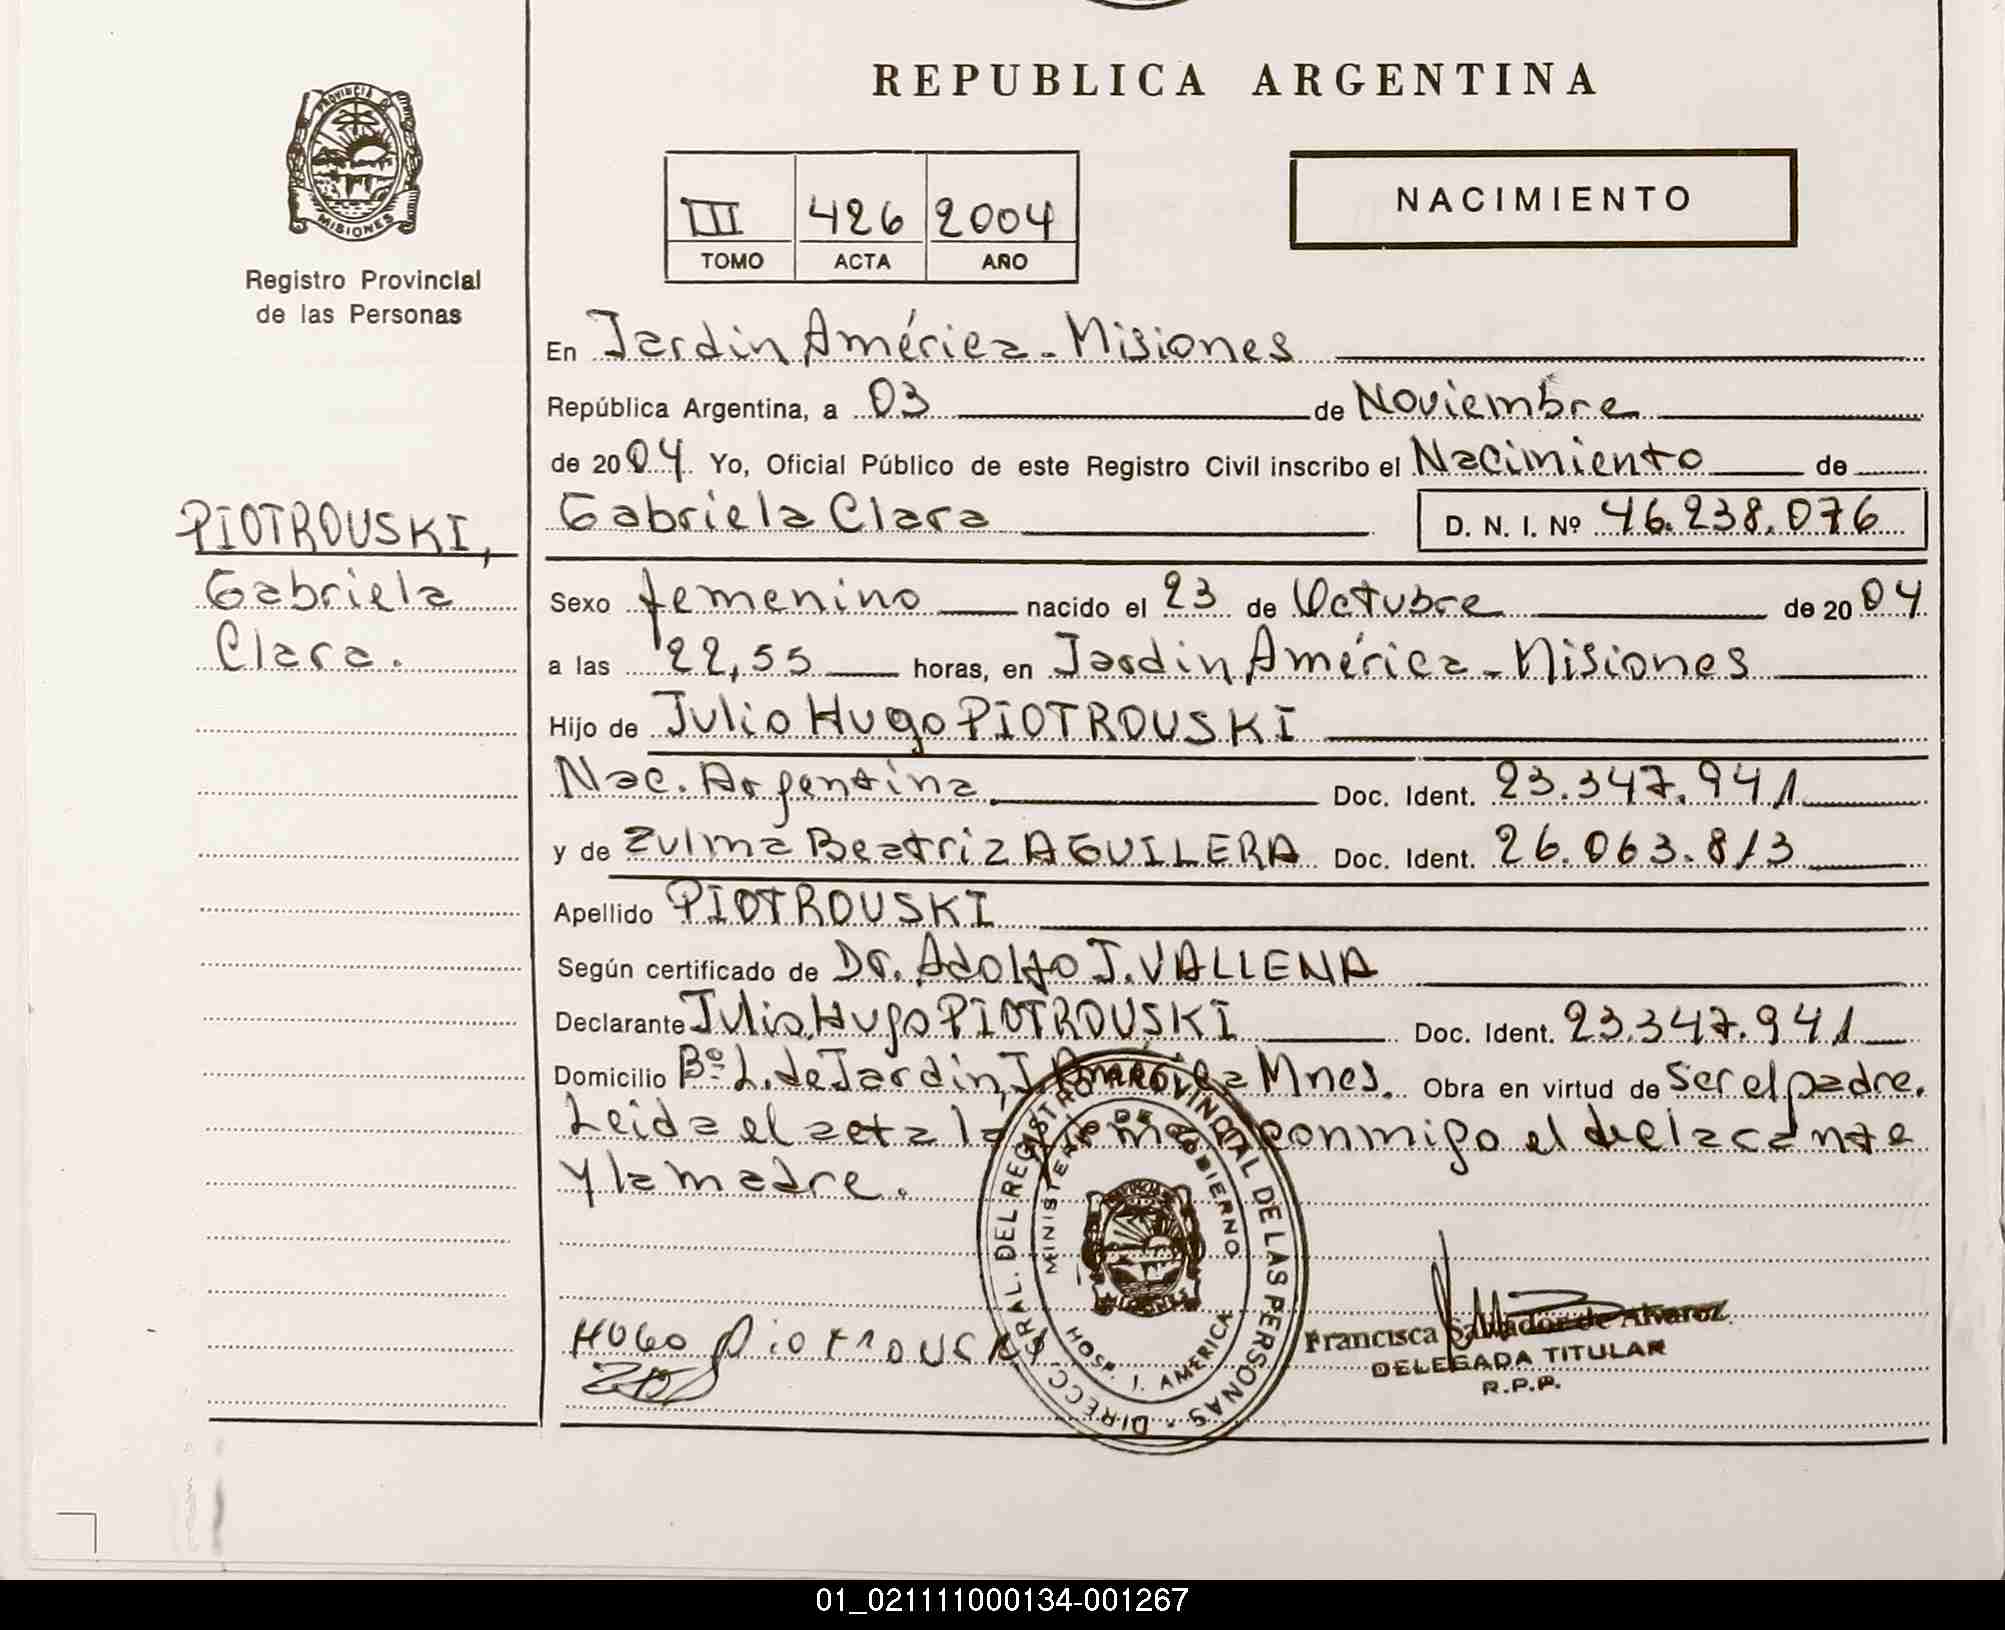 REPUBLICA ARGENTINA
PROVINCIA DE
MISIONES
Registro Provincial
de las Personas
III 426 2004
TOMO ACTA AÑO
NACIMIENTO
En Jardin América - Misiones
República Argentina, a 03 de Noviembre
de 2004. Yo, Oficial Público de este Registro Civil inscribo el Nacimiento de
Gabriela Clara D. N. I. Nº 46.238.076
PIOTROUSKI,
Gabriela
Clara.
Sexo femenino nacido el 23 de Octubre de 2004
a las 22,55 horas, en Jardin América - Misiones
Hijo de Julio Hugo PIOTROUSKI
Nac. Argentina. Doc. Ident. 23.347.941
y de Zulma Beatriz AGUILERA Doc. Ident. 26.063.813
Apellido PIOTROUSKI
Según certificado de Dr. Adolfo J. VALLENA
Declarante Julio Hugo PIOTROUSKI Doc. Ident. 23.347.941
Domicilio Bº L. de Jardin, J. América Mnes. Obra en virtud de ser el padre.
Leida el acta la firman conmigo el declarante
y la madre.
DIRECC. GRAL. DEL REGISTRO PROVINCIAL DE LAS PERSONAS
MINISTERIO DE GOBIERNO
HOSP. J. AMERICA
HUGO PIOTROUSKI
Francisca Salvador de Alvarez
DELEGADA TITULAR
R.P.P.
01_021111000134-001267